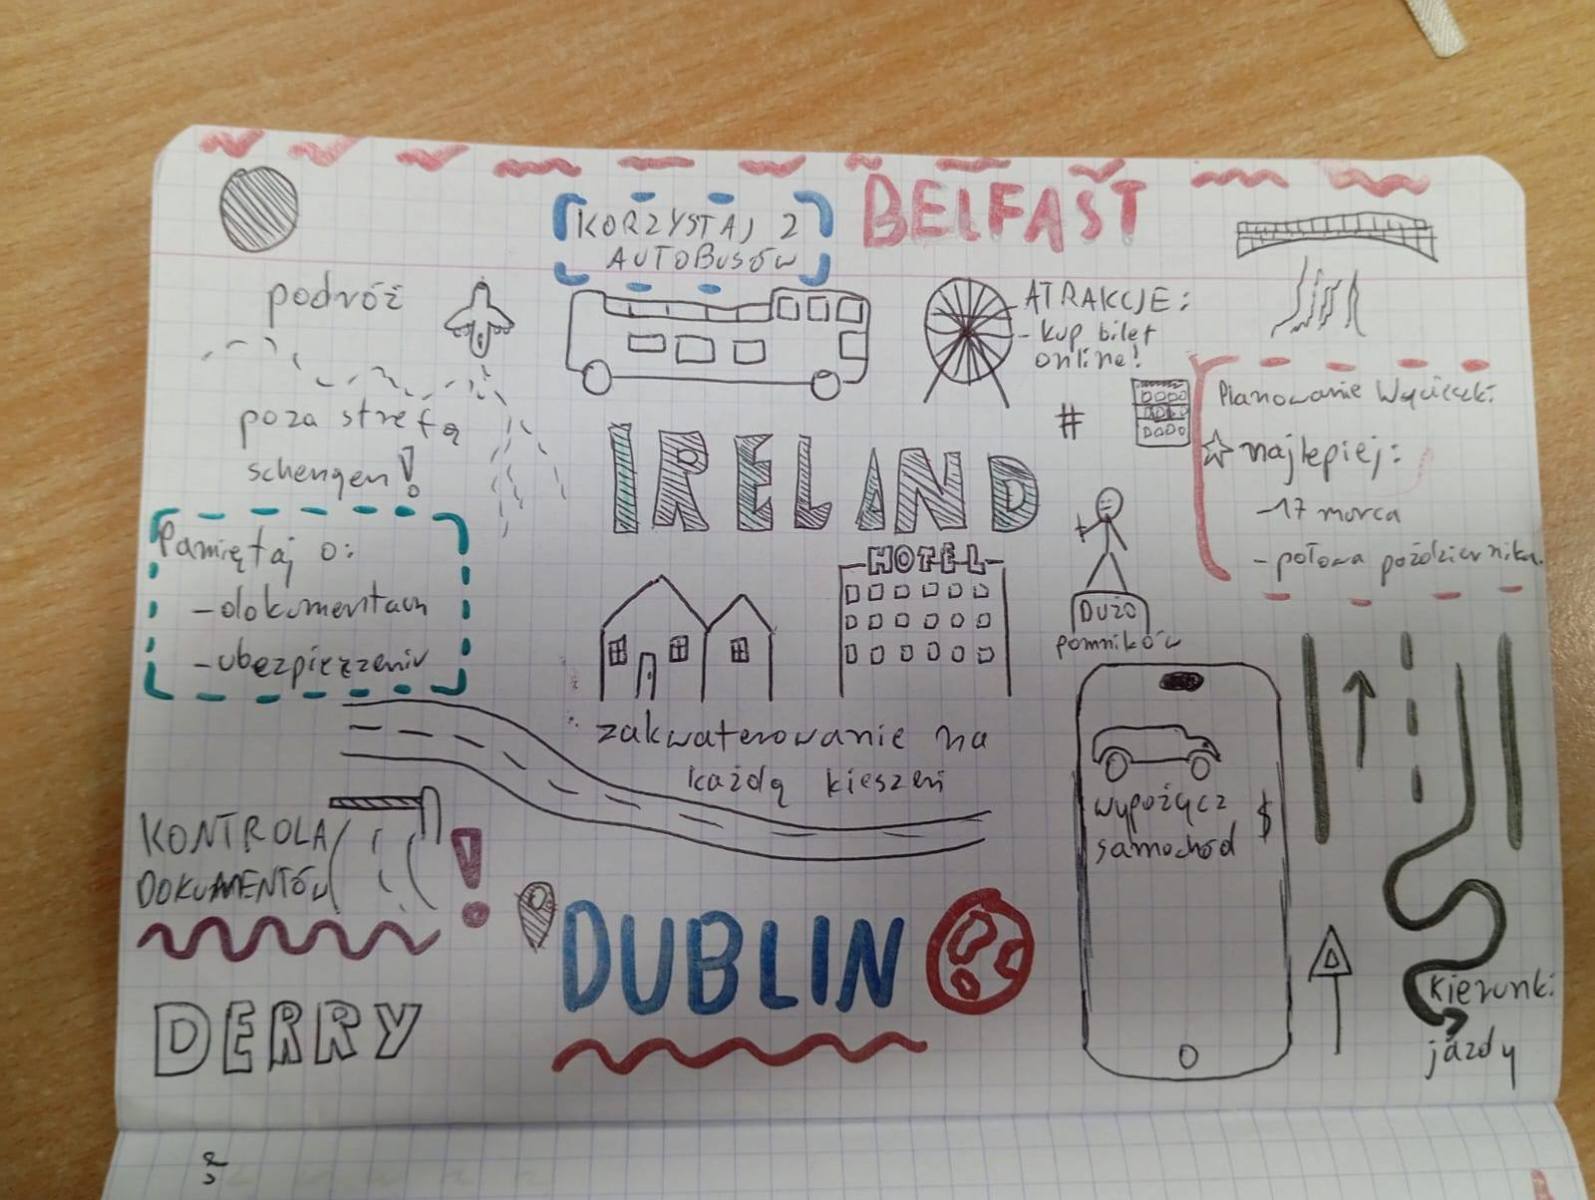 BELFAST
KORZYSTAJ Z
AUTOBUSÓW
podróż
poza strefą
schengen!
ATRAKCJE:
- kup bilet
online!
#
Planowanie Wycieczki
najlepiej:
-17 marca
-połowa października
IRELAND
Pamiętaj o:
-dokumentach
-ubezpieczeniu
HOTEL
DUŻO
pomników
zakwaterowanie na
każdą kieszeń
wypożycz
samochód
$
KONTROLA
DOKUMENTÓW
!
DUBLIN
DERRY
kierunki
jazdy